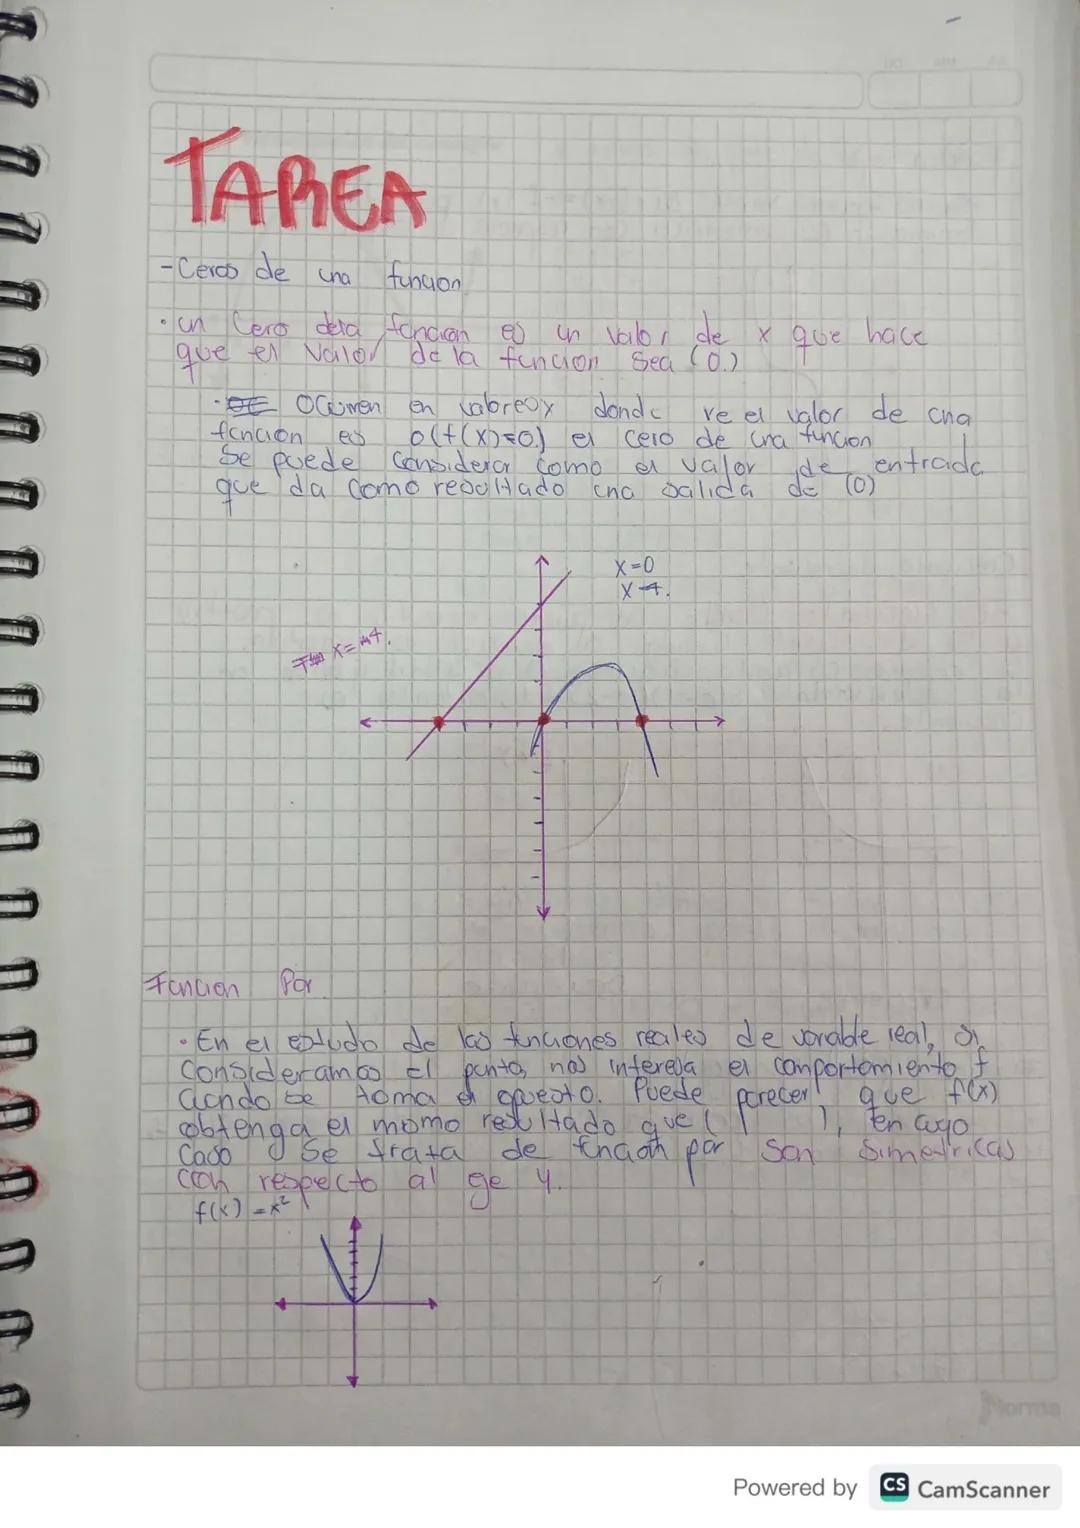 TAREA
-Ceros de una funcion
• un Cero dela funcion es un valor de x que hace
que el valor de la funcion Sea (0.)
• Ocurren en valoresx donde re el valor de una
funcion es 0(f(x)=0.) el cero de una funcion
Se puede considerar como el valor de entrada
que da como resultado una salida de (0)
X=0
X=4.
X=-4.
Funcion Par
• En el estudo de las funciones reales de variable real, si
Consideramos el punto, nos interesa el comportamiento f
cuando se toma el opuesto. Puede parecer que f(x)
obtenga el mismo resultado que ( ), en cuyo
Caso Se trata de funcion par Son Simetricas
con respecto al eje y.
f(x) = x²
Norma
Powered by CS CamScanner